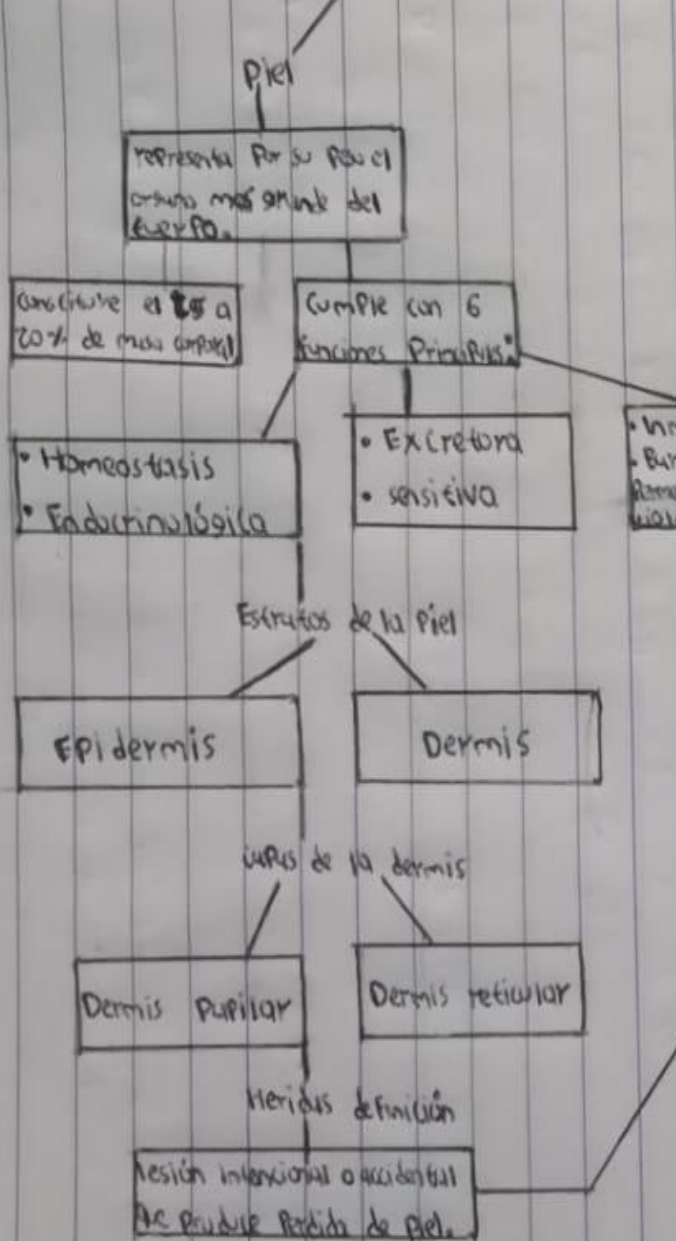 Piel
representa por su peso el
organo mas grande del
cuerpo.
constituye el 15 a
20% de masa corporal
Cumple con 6
funciones Principales:
• Homeostasis
• Endocrinológica
• Excretora
• sensitiva
Estratos de la piel
Epidermis
Dermis
capas de la dermis
Dermis papilar
Dermis reticular
Heridas definición
lesión intencional o accidental
que produce perdida de piel.